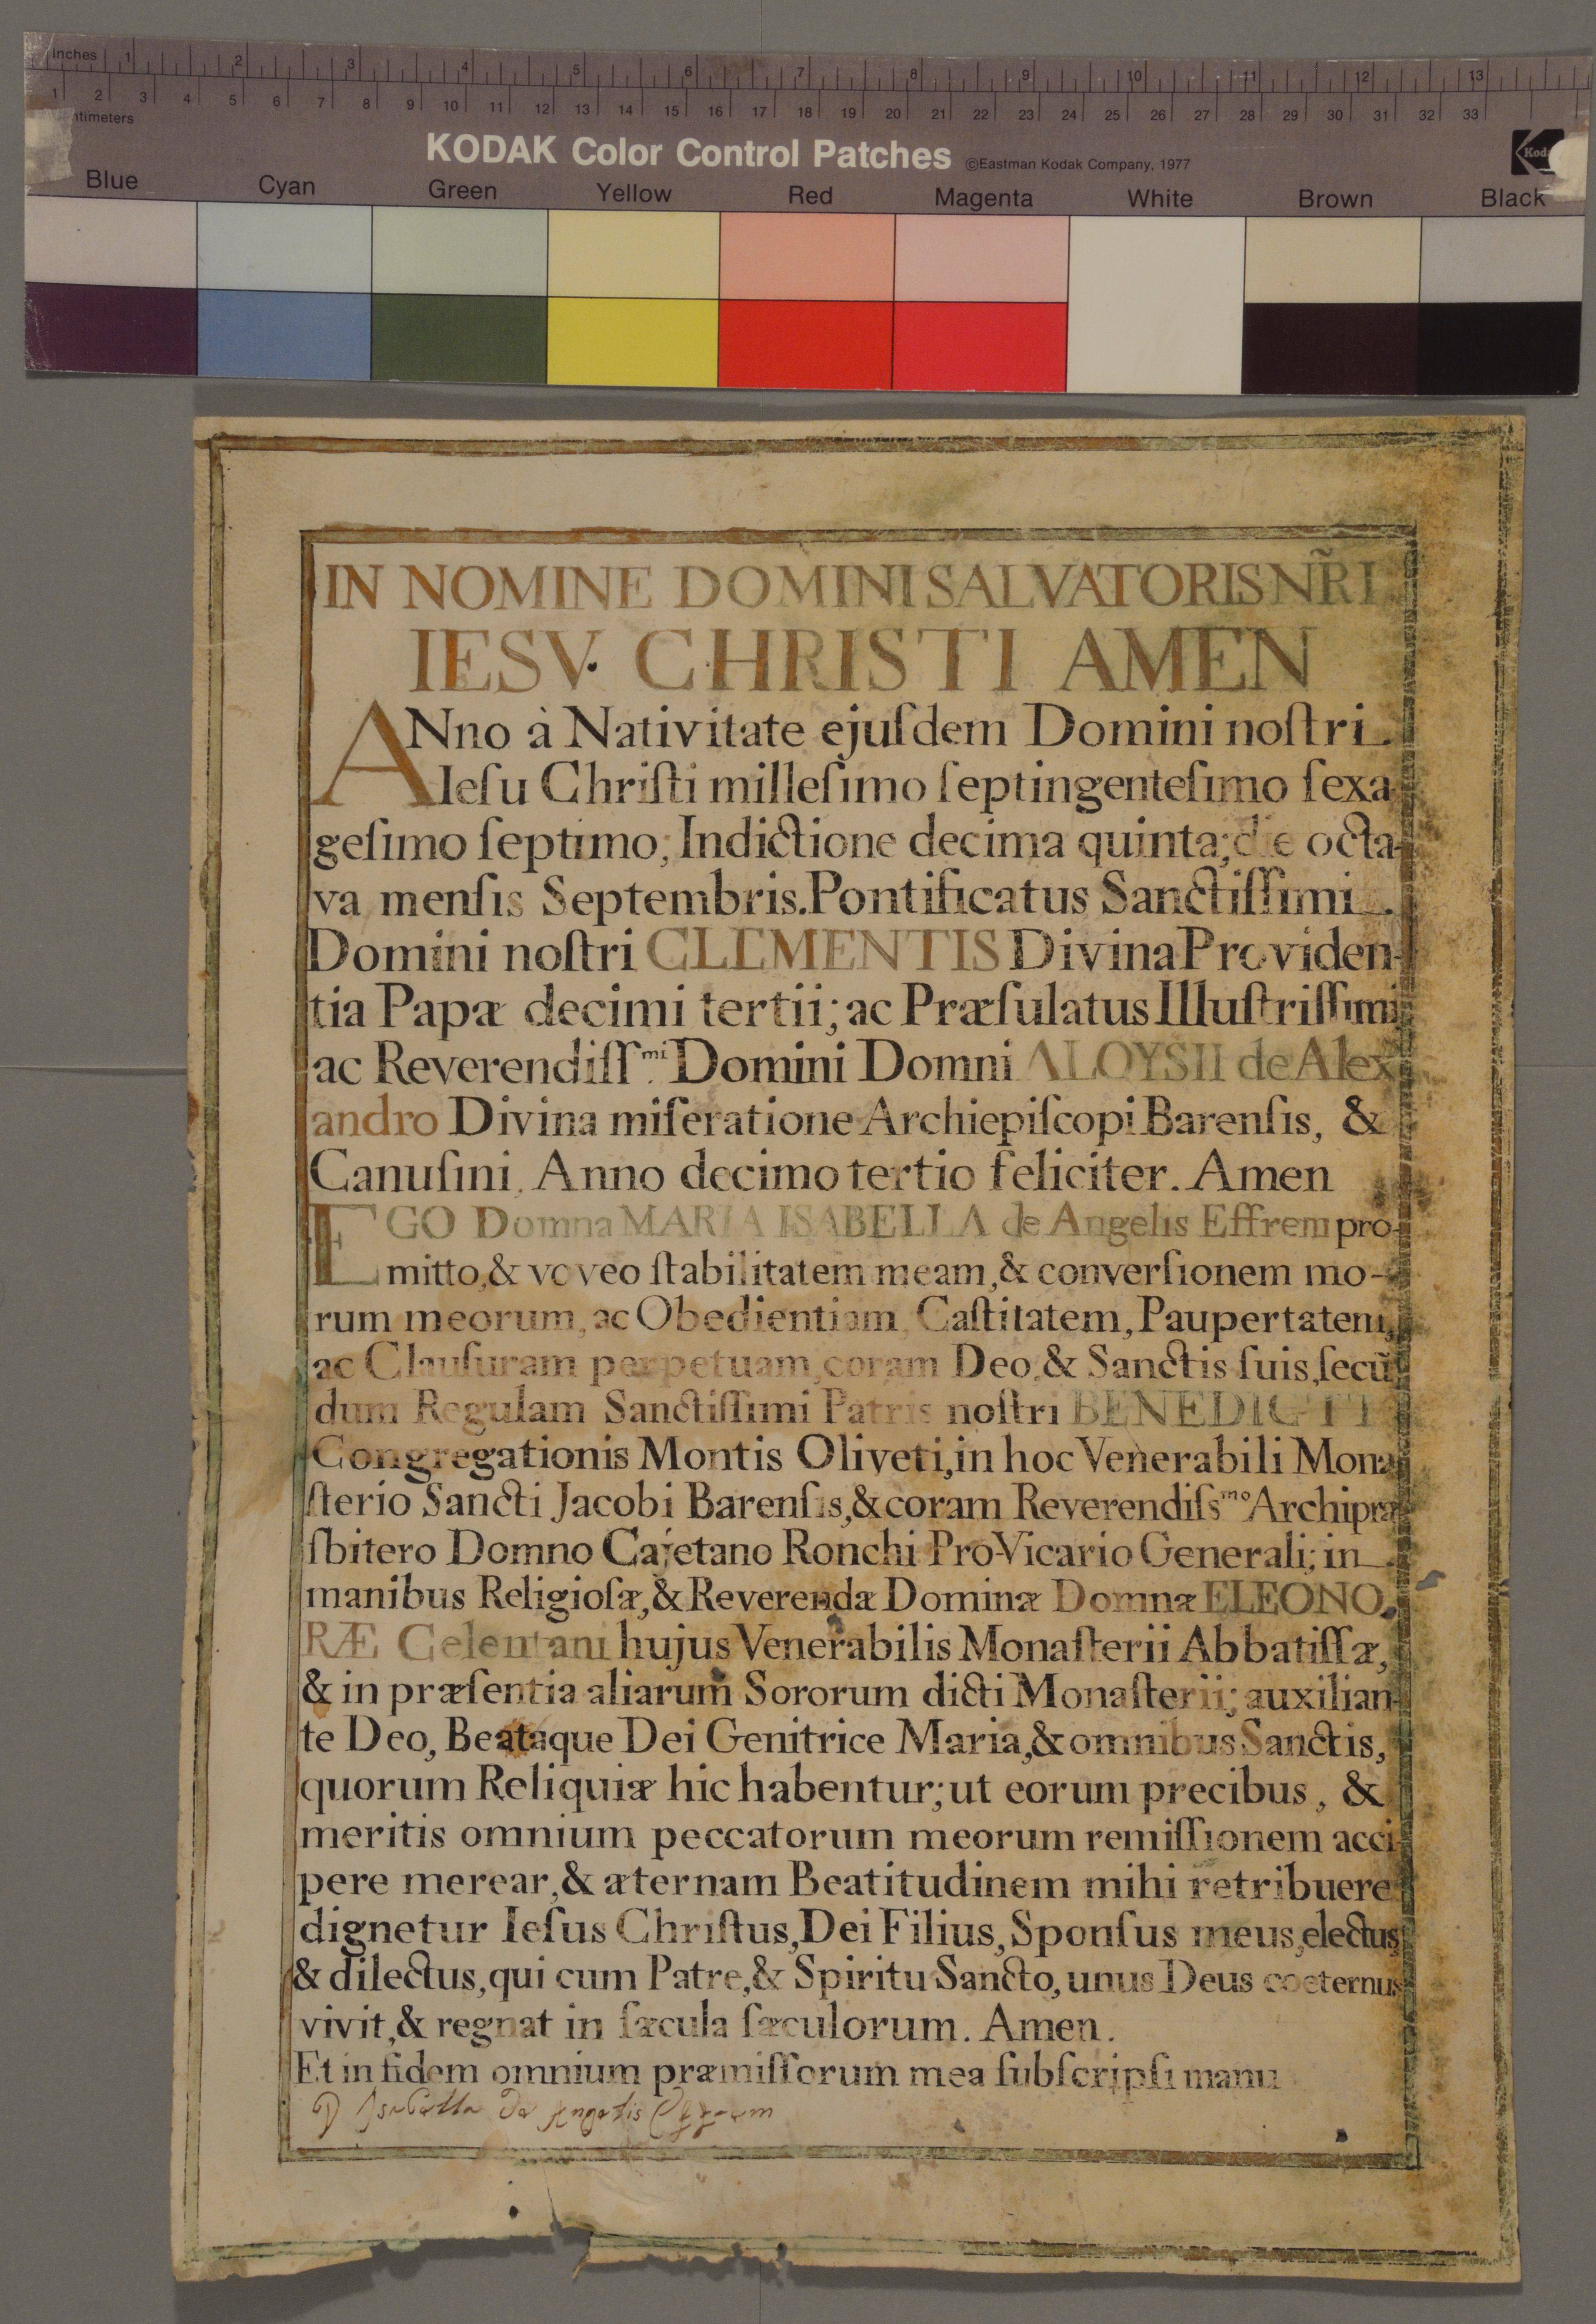 Inches 1 2 3 4 5 6 7 8 9 10 11 12 13
1 2 3 4 5 6 7 8 9 10 11 12 13 14 15 16 17 18 19 20 21 22 23 24 25 26 27 28 29 30 31 32 33
KODAK Color Control Patches ©Eastman Kodak Company, 1977
Blue Cyan Green Yellow Red Magenta White Brown Black
IN NOMINE DOMINI SALVATORIS NR̃I
IESV. CHRISTI AMEN
ANno à Nativitate ejuſdem Domini noſtri
Ieſu Chriſti milleſimo ſeptingenteſimo ſexa
geſimo ſeptimo; Indictione decima quinta; die octa-
va menſis Septembris. Pontificatus Sanctiſſimi
Domini noſtri CLEMENTIS Divina Providen-
tia Papæ decimi tertii; ac Præſulatus Illuſtriſſimi
ac Reverendiſſ.ᵐⁱ Domini Domni ALOYSII de Alex
andro Divina miſeratione Archiepiſcopi Barenſis, &
Canuſini. Anno decimo tertio feliciter. Amen
EGO Domna MARIA ISABELLA de Angelis Effrem pro-
mitto, & voveo ſtabilitatem meam, & converſionem mo-
rum meorum, ac Obedientiam, Caſtitatem, Paupertatem,
ac Clauſuram perpetuam, coram Deo, & Sanctis ſuis, ſecũ
dum Regulam Sanctiſſimi Patris noſtri BENEDICTI
Congregationis Montis Oliveti, in hoc Venerabili Mona
ſterio Sancti Jacobi Barenſis, & coram Reverendiſsᵐᵒ Archipræ
ſbitero Domno Cajetano Ronchi Pro-Vicario Generali; in
manibus Religioſæ, & Reverendæ Dominæ Domnæ ELEONO
RÆ Celentani hujus Venerabilis Monaſterii Abbatiſſæ,
& in præſentia aliarum Sororum dicti Monaſterii; auxilian-
te Deo, Beataque Dei Genitrice Maria, & omnibus Sanctis,
quorum Reliquiæ hic habentur; ut eorum precibus, &
meritis omnium peccatorum meorum remiſſionem acci
pere merear, & æternam Beatitudinem mihi retribuere
dignetur Ieſus Chriſtus, Dei Filius, Sponſus meus, electus
& dilectus, qui cum Patre, & Spiritu Sancto, unus Deus coeternus
vivit, & regnat in ſæcula ſæculorum. Amen.
Et in fidem omnium præmiſſorum mea ſubſcripſi manu
D Isabella De Angelis Effrem